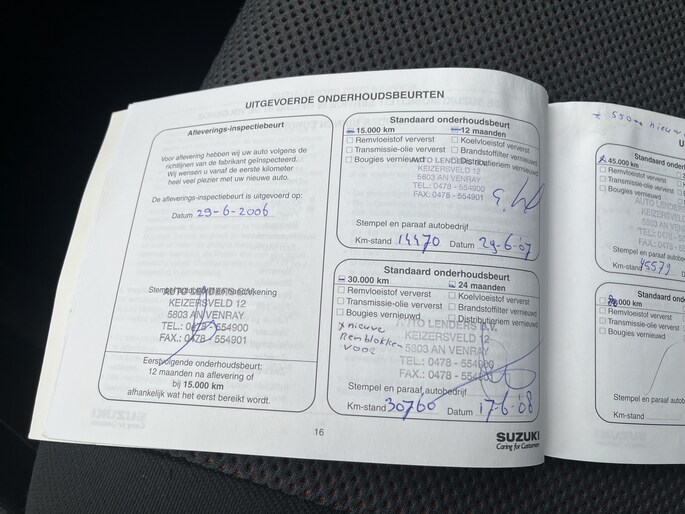 UITGEVOERDE ONDERHOUDSBEURTEN
Afleverings-inspectiebeurt
Voor aflevering hebben wij uw auto volgens de
richtlijnen van de fabrikant geïnspecteerd.
Wij wensen u vanaf de eerste kilometer
heel veel plezier met uw nieuwe auto.
De afleverings-inspectiebeurt is uitgevoerd op:
Datum 29-6-2006
AUTO LENDERS B.V.
KEIZERSVELD 12
5803 AN VENRAY
TEL.: 0478 - 554900
FAX.: 0478 - 554901
Eerstvolgende onderhoudsbeurt:
12 maanden na aflevering of
bij 15.000 km
afhankelijk wat het eerst bereikt wordt.
Standaard onderhoudsbeurt
15.000 km 12 maanden
Remvloeistof ververst Koelvloeistof ververst
Transmissie-olie ververst Brandstoffilter vernieuwd
Bougies vernieuwd Distributieriem vernieuwd
AUTO LENDERS
KEIZERSVELD 12
5803 AN VENRAY
TEL.: 0478 - 554900
FAX: 0478 - 554901
Stempel en paraaf autobedrijf
Km-stand 14470 Datum 29-6-'07
Standaard onderhoudsbeurt
30.000 km 24 maanden
Remvloeistof ververst Koelvloeistof ververst
Transmissie-olie ververst Brandstoffilter vernieuwd
Bougies vernieuwd Distributieriem vernieuwd
x nieuwe
Remblokken
voor
AUTO LENDERS B.V.
KEIZERSVELD 12
5803 AN VENRAY
TEL.: 0478 - 554900
FAX.: 0478 - 554901
Stempel en paraaf autobedrijf
Km-stand 30760 Datum 17-6-'08
16
SUZUKI
Caring for Customers
Standaard ond
45.000 km
Remvloeistof ververst
Transmissie-olie ververs
Bougies vernieuwd
AUTO LEN
KEIZERS
5803 AN
TEL.: 0478
FAX.: 0478
Stempel en paraaf
Km-stand 45579
Standaard ond
.000 km
Remvloeistof ververst
Transmissie-olie verve
Bougies vernieuwd
Stempel en paraaf
Km-stand